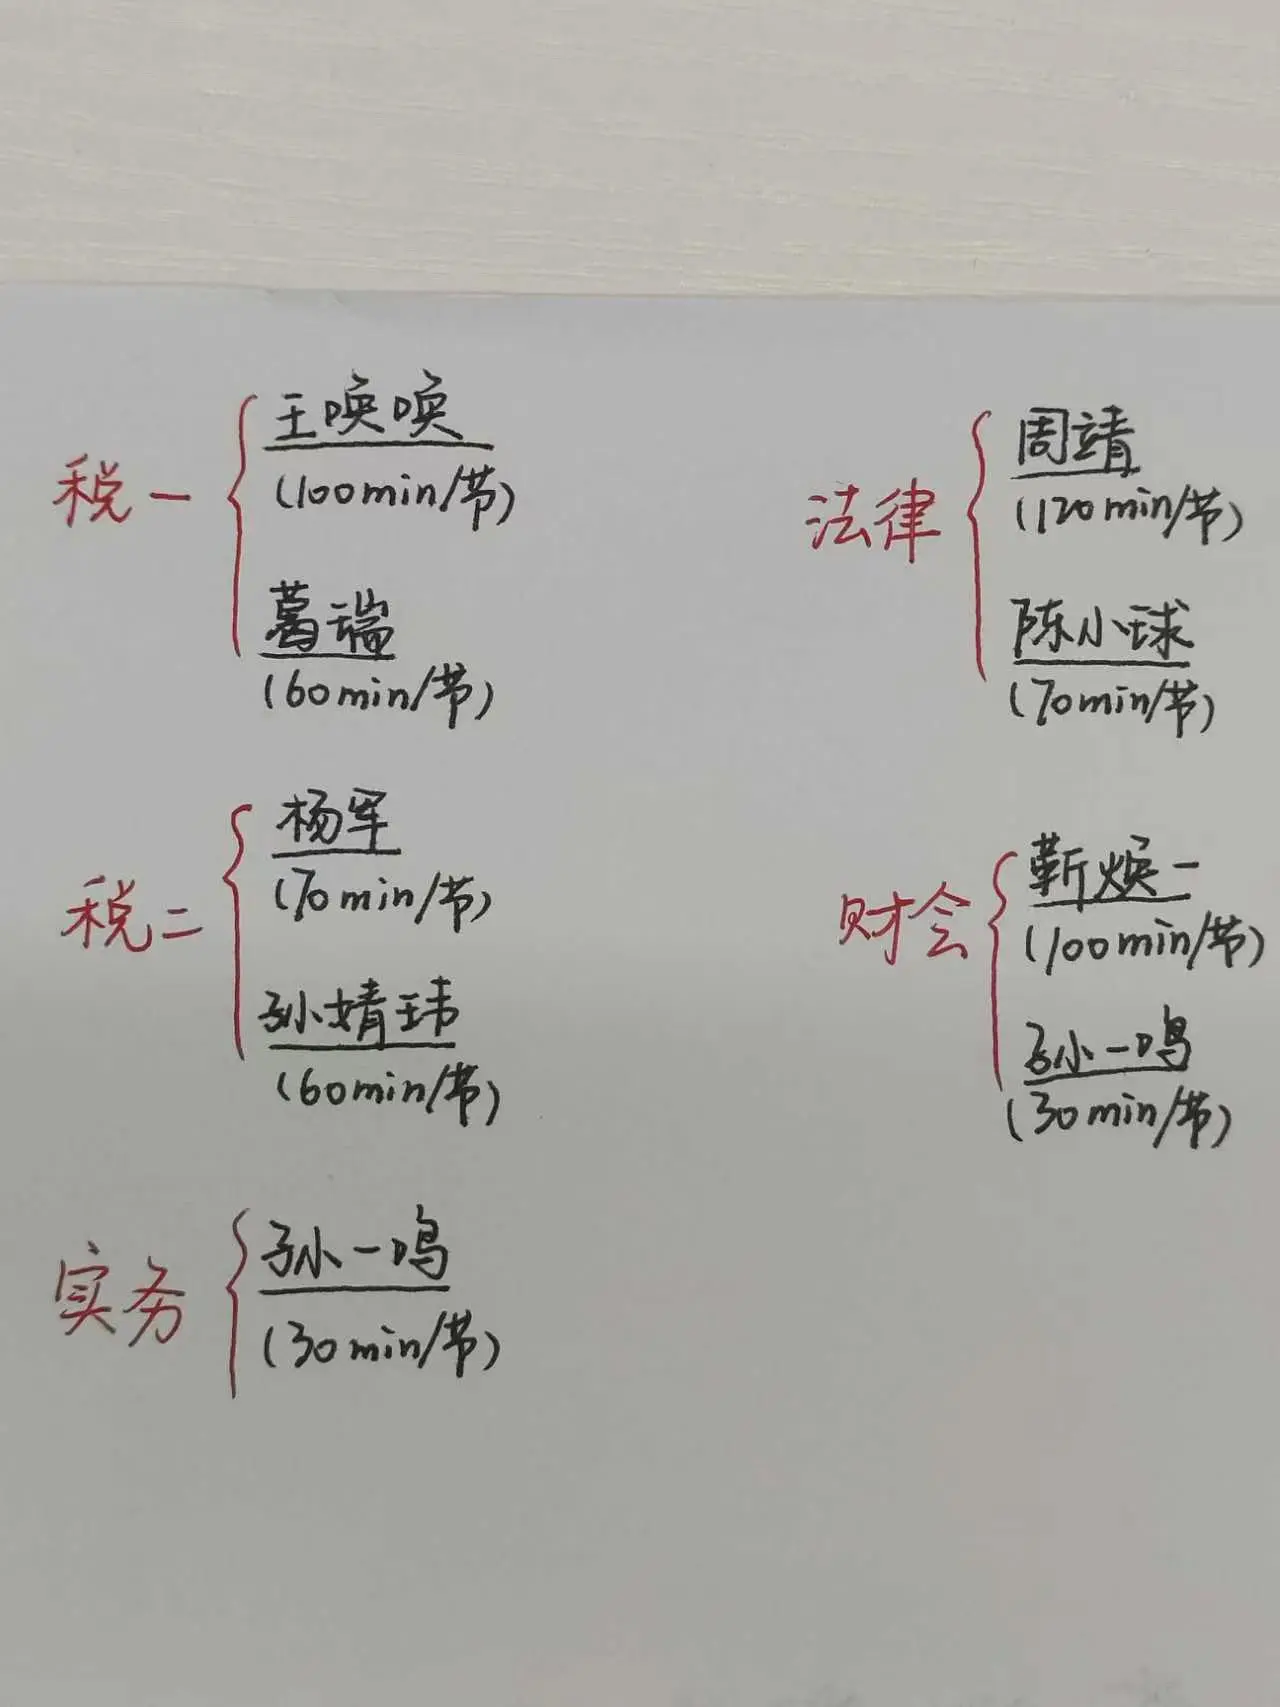 税一
王唤唤
(100min/节)
葛瑞
(60min/节)
税二
杨军
(70min/节)
孙婧玮
(60min/节)
实务
孙一鸣
(30min/节)
法律
周靖
(120min/节)
陈小球
(70min/节)
财会
靳焕一
(100min/节)
孙一鸣
(30min/节)